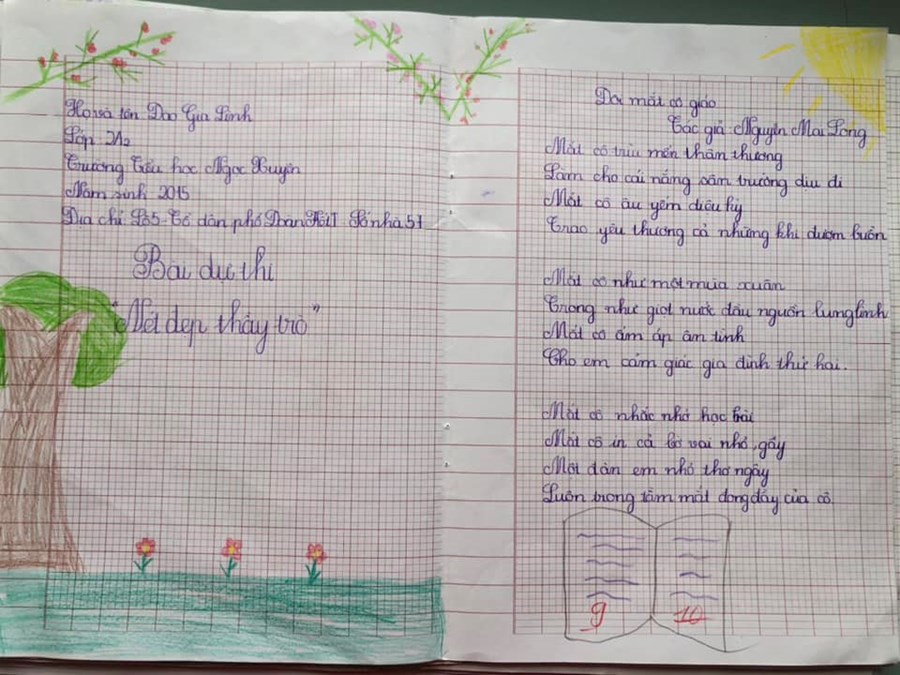 Họ và tên Đào Gia Linh
Lớp 2A2
Trường Tiểu học Ngọc Xuyên
Năm sinh 2015
Địa chỉ Lô5-Tổ dân phố Đoàn Kết 1 Số nhà 57
Bài dự thi
"Nét đẹp thầy trò"
Đôi mắt cô giáo
Tác giả Nguyễn Mai Long
Mắt cô trìu mến thân thương
Làm cho cái nắng sân trường dịu đi
Mắt cô âu yếm diệu kỳ
Trao yêu thương cả những khi đượm buồn
Mắt cô như một mùa xuân
Trong như giọt nước đầu nguồn lung linh
Mắt cô ấm áp ân tình
Cho em cảm giác gia đình thứ hai.
Mắt cô nhắc nhở học bài
Mắt cô in cả bờ vai nhỏ, gầy
Một đàn em nhỏ thơ ngây
Luôn trong tầm mắt dong đầy của cô
9
10